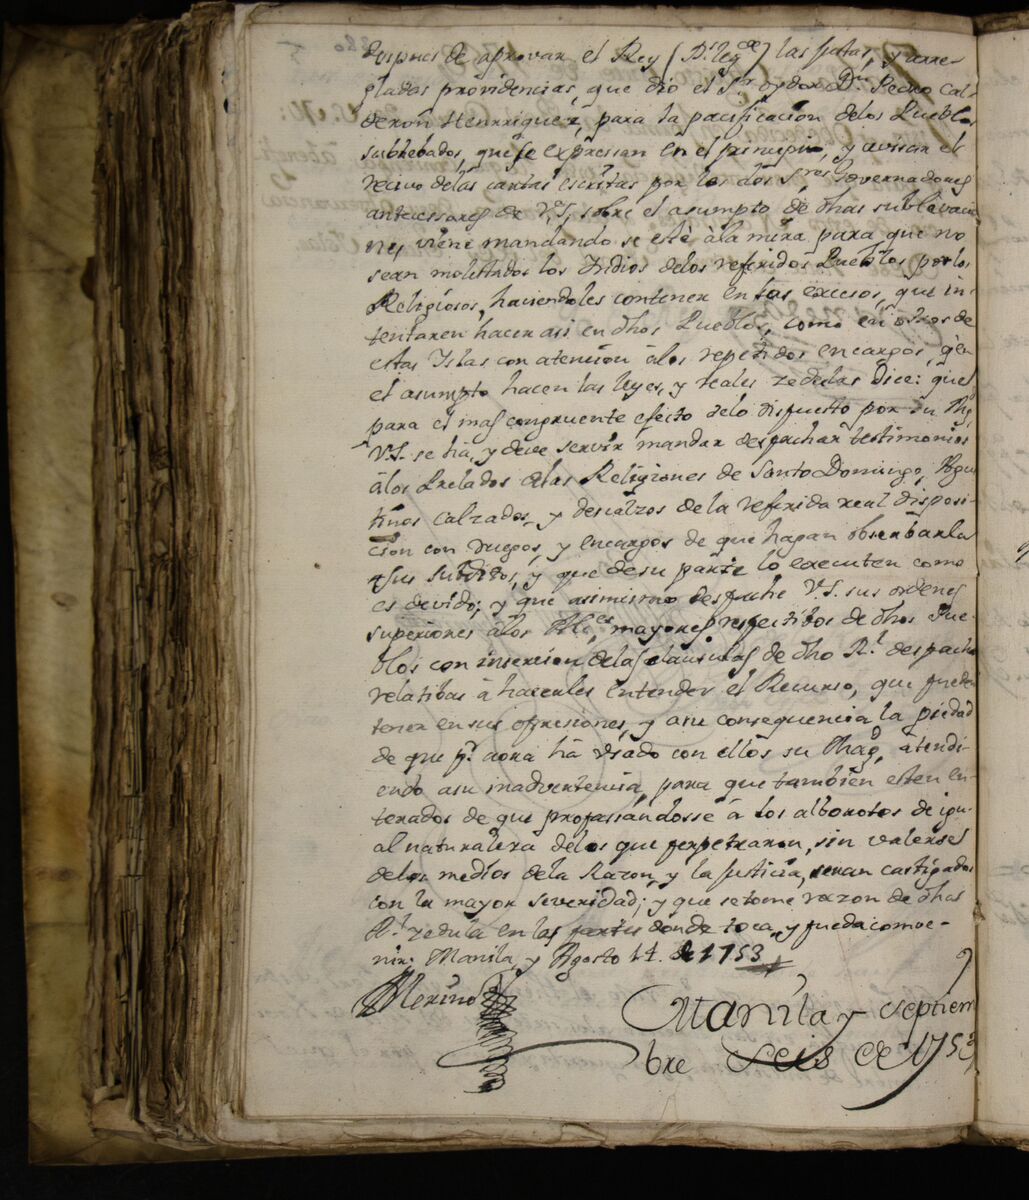 despues de aprovar el Rey (Ds. le gde) las justas, y arre-
gladas providencias, que dio el Sr. oydor Dn. Pedro Cal-
deron Henrriquez, para la pacificacion delos Pueblos
sublebados, que se expressan en el principio, y avisar el
recivo delas cartas escritas por los dos Sres. Governadores
antecessores de V.S. sobre el asumpto de dhas sublevacio-
nes, viene mandando se estè àla mira para que no
sean molestados los Indios delos referidos Pueblos por los
Religiosos, haciendoles contener en los excesos, que in-
tentaren hacer asi en dhos Pueblos, como en otros de
estas Yslas con atencion àlos repetidos encargos, q en
el asumpto hacen las leyes, y reales zedulas Dice: que
para el mas congruente efecto delo dispuesto por su Mg.
V.S. se há, y deve servir mandar despachar testimonios
àlos Prelados delas Religiones de Santo Domingo, Agus
tinos calzados, y descalzos de la referida real disposi-
cion con ruegos, y encargos de que hagan obserbarla
asus subditos, y que desu parte lo executen como
es devido; y que asimismo despache V.S. sus ordenes
superiores àlos Alces. mayores respectibos de dhos Pue-
blos con insercion delas clausulas de dho Rl. despacho
relatibas à hacerles entender el Recurso, que pueden
tener en sus opresiones, y asu consequencia la piedad
de que pr. aora há usado con ellos su Magd. atendi-
endo asu inadvertencia, para que tambien esten en-
terados de que propasándosse á los alborotos de igu-
al naturaleza delos que perpetraron, sin valerse
delos medios dela Razon, y la Justicia, seran castigados
con la mayor severidad; y que se tome razon de dha
Rl. zedula en las partes donde toca, y pueda conve-
nir. Manila, y Agosto 14. de 1753
Merino
Manila y Septiem
bre Seis de 1753